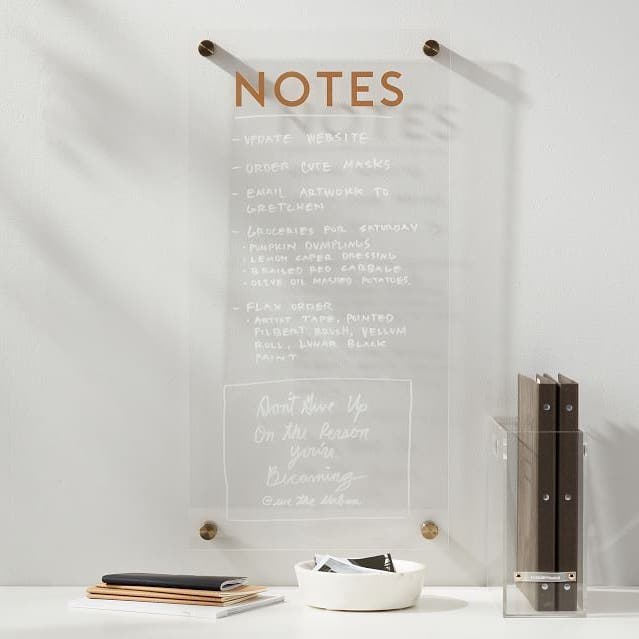 NOTES
- UPDATE WEBSITE
- ORDER CUTE MASKS
- EMAIL ARTWORK TO
GRETCHEN
- GROCERIES FOR SATURDAY
• PUMPKIN DUMPLINGS
• LEMON CAPER DRESSING
• BRAISED RED CABBAGE
• OLIVE OIL MASHED POTATOES
- FLAX ORDER
• ARTIST TAPE, POINTED
FILBERT BRUSH, VELLUM
ROLL, LUNAR BLACK
PAINT
Don't Give Up
On the Person
You're
Becoming